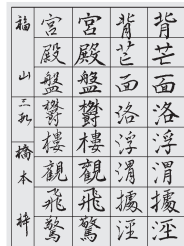 背芒面洛浮渭據涇
背芒面洛浮渭據涇
宮殿盤鬱樓觀飛驚
宮殿盤鬱樓觀飛驚
福山三
橋本